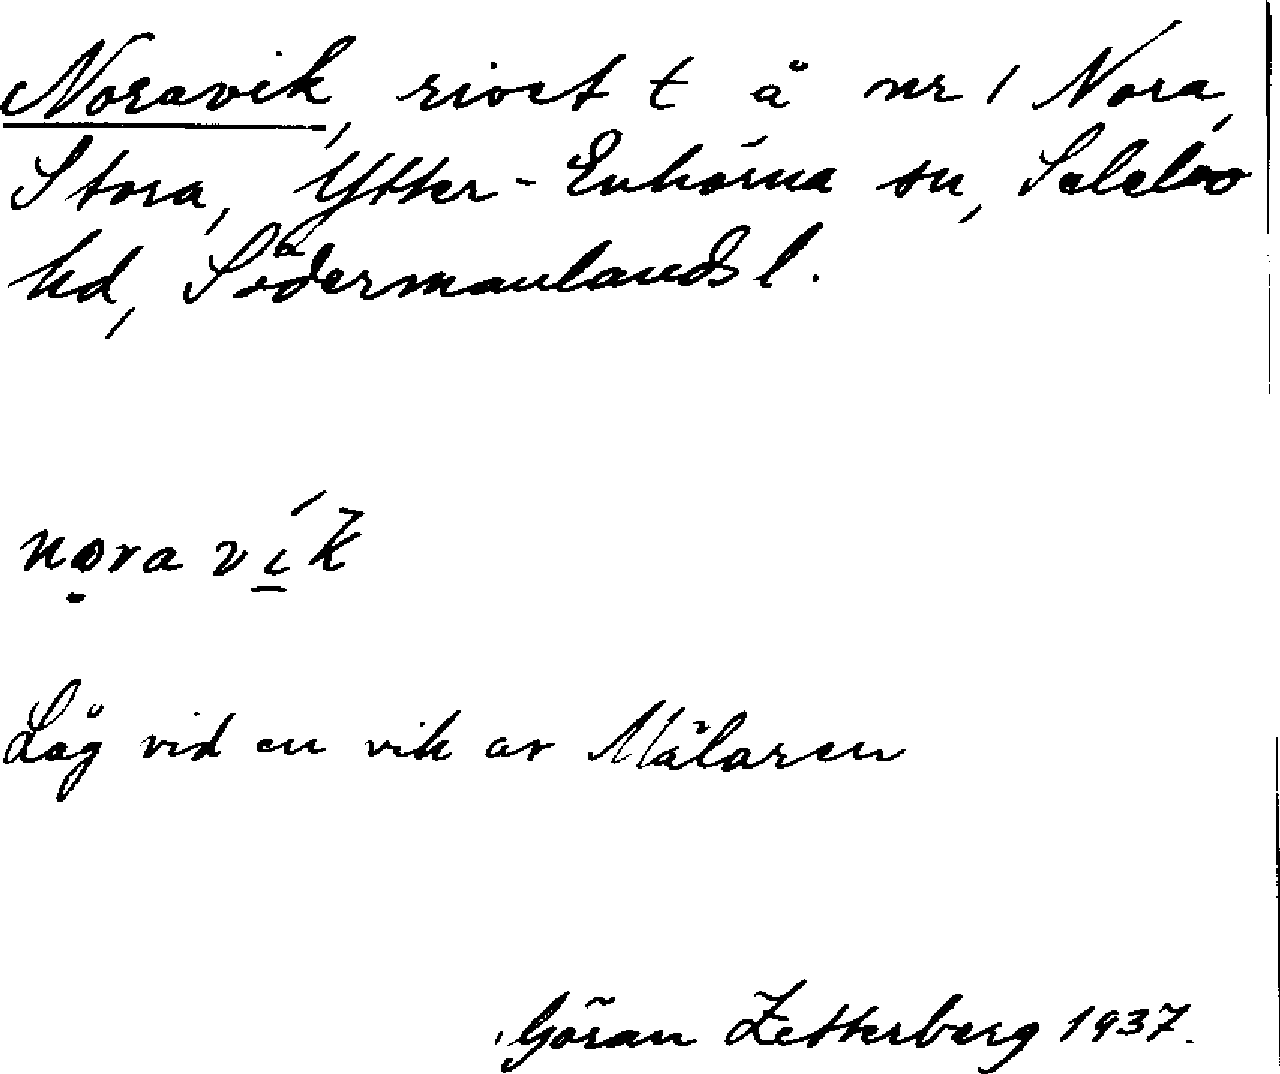 Noravik, rivet t å nr 1 Nora,
Stora, Ytter-Enhörna sn, Selebo
hd, Södermanlands l.
nora vík
Låg vid en vik av Mälaren
Göran Zetterberg 1937.